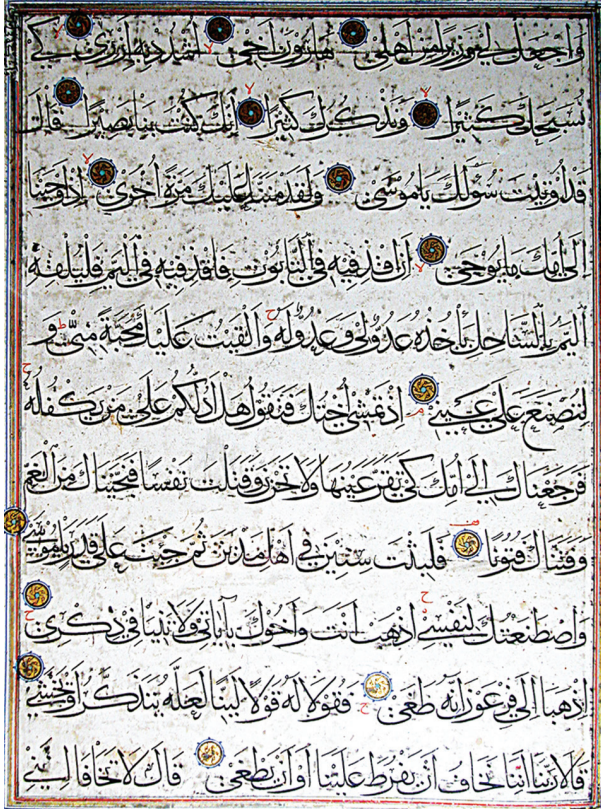 وَاجْعَلْ لِي وَزِيرًا مِنْ أَهْلِي هَارُونَ أَخِي اشْدُدْ بِهِ أَزْرِي كَيْ
نُسَبِّحَكَ كَثِيرًا وَنَذْكُرَكَ كَثِيرًا إِنَّكَ كُنْتَ بِنَا بَصِيرًا قَالَ
قَدْ أُوتِيتَ سُؤْلَكَ يَا مُوسَى وَلَقَدْ مَنَنَّا عَلَيْكَ مَرَّةً أُخْرَى إِذْ أَوْحَيْنَا
إِلَى أُمِّكَ مَا يُوحَى أَنِ اقْذِفِيهِ فِي التَّابُوتِ فَاقْذِفِيهِ فِي الْيَمِّ فَلْيُلْقِهِ
الْيَمُّ بِالسَّاحِلِ يَأْخُذْهُ عَدُوٌّ لِي وَعَدُوٌّ لَهُ وَأَلْقَيْتُ عَلَيْكَ مَحَبَّةً مِنِّي وَ
لِتُصْنَعَ عَلَى عَيْنِي إِذْ تَمْشِي أُخْتُكَ فَتَقُولُ هَلْ أَدُلُّكُمْ عَلَى مَنْ يَكْفُلُهُ
فَرَجَعْنَاكَ إِلَى أُمِّكَ كَيْ تَقَرَّ عَيْنُهَا وَلَا تَحْزَنَ وَقَتَلْتَ نَفْسًا فَنَجَّيْنَاكَ مِنَ الْغَمِّ
وَفَتَنَّاكَ فُتُونًا فَلَبِثْتَ سِنِينَ فِي أَهْلِ مَدْيَنَ ثُمَّ جِئْتَ عَلَى قَدَرٍ يَا مُوسَى
وَاصْطَنَعْتُكَ لِنَفْسِي اذْهَبْ أَنْتَ وَأَخُوكَ بِآيَاتِي وَلَا تَنِيَا فِي ذِكْرِي
اذْهَبَا إِلَى فِرْعَوْنَ إِنَّهُ طَغَى فَقُولَا لَهُ قَوْلًا لَيِّنًا لَعَلَّهُ يَتَذَكَّرُ أَوْ يَخْشَى
قَالَا رَبَّنَا إِنَّنَا نَخَافُ أَنْ يَفْرُطَ عَلَيْنَا أَوْ أَنْ يَطْغَى قَالَ لَا تَخَافَا إِنَّنِي